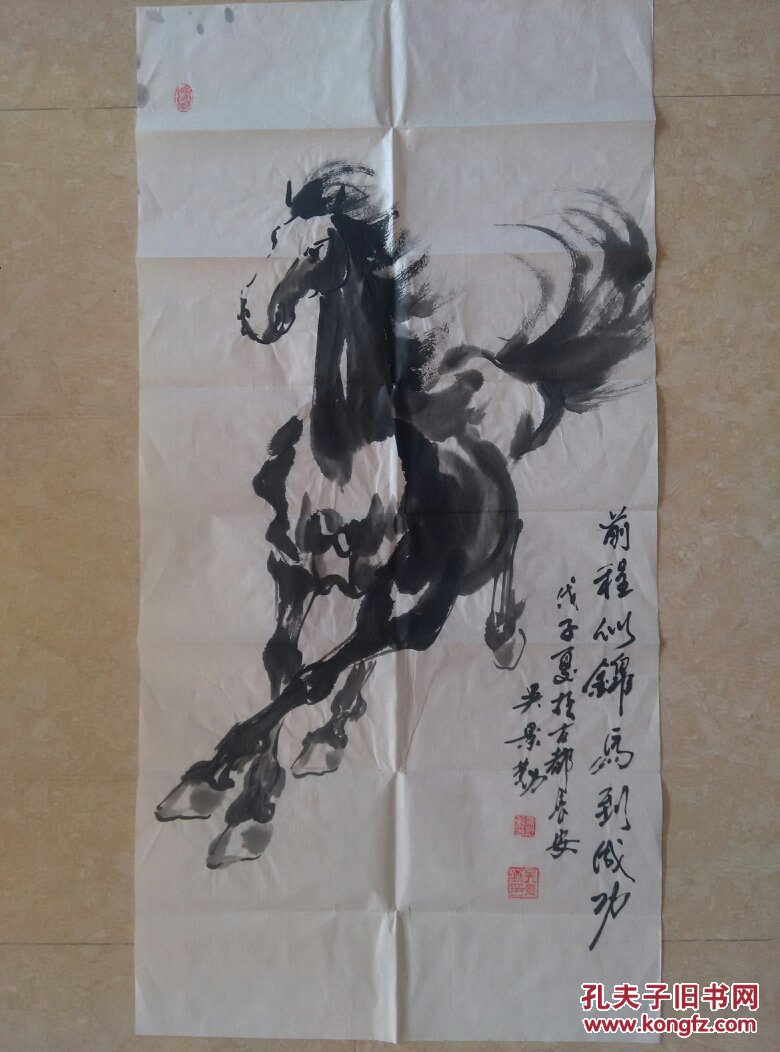 前程似锦马到成功
戊子夏於古都长安
吴景勤
孔夫子旧书网
www.kongfz.com